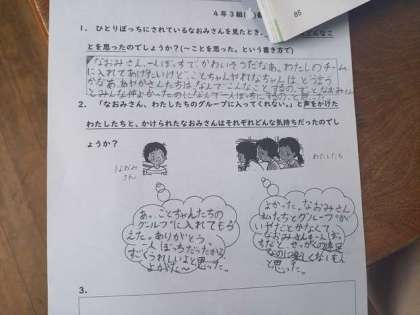 85
4年3組(
1. ひとりぼっちにされているなおみさんを見たとき、
とを思ったのでしょうか?(~ことを思った。という書き方で)
なおみさん、一人ぼっちで、かわいそうだなあ。わたしのチーム
に入れてあげたいけど、ことちゃんや
は、どう言う
かなあ。
なんでこんなことするの。
2. 「なおみさん、わたしたちのグループに入ってくれない。」と声をかけた
わたしたちと、かけられたなおみさんはそれぞれどんな気持ちだったのでし
ょうか?
なおみ
さん
わたしたち
あっ、ことちゃんたちの
グループに入れてもら
えた。ありがとう。
一人ぼっちだったから
すごくうれしいよと思った。
よかった~
よかった。なおみさん
私たちとグループが
いやだとかなくて。
なおみさんも一人ぼっ
ちだと、せっかくの遠足
なのに楽しくないもん
と思った。
3.